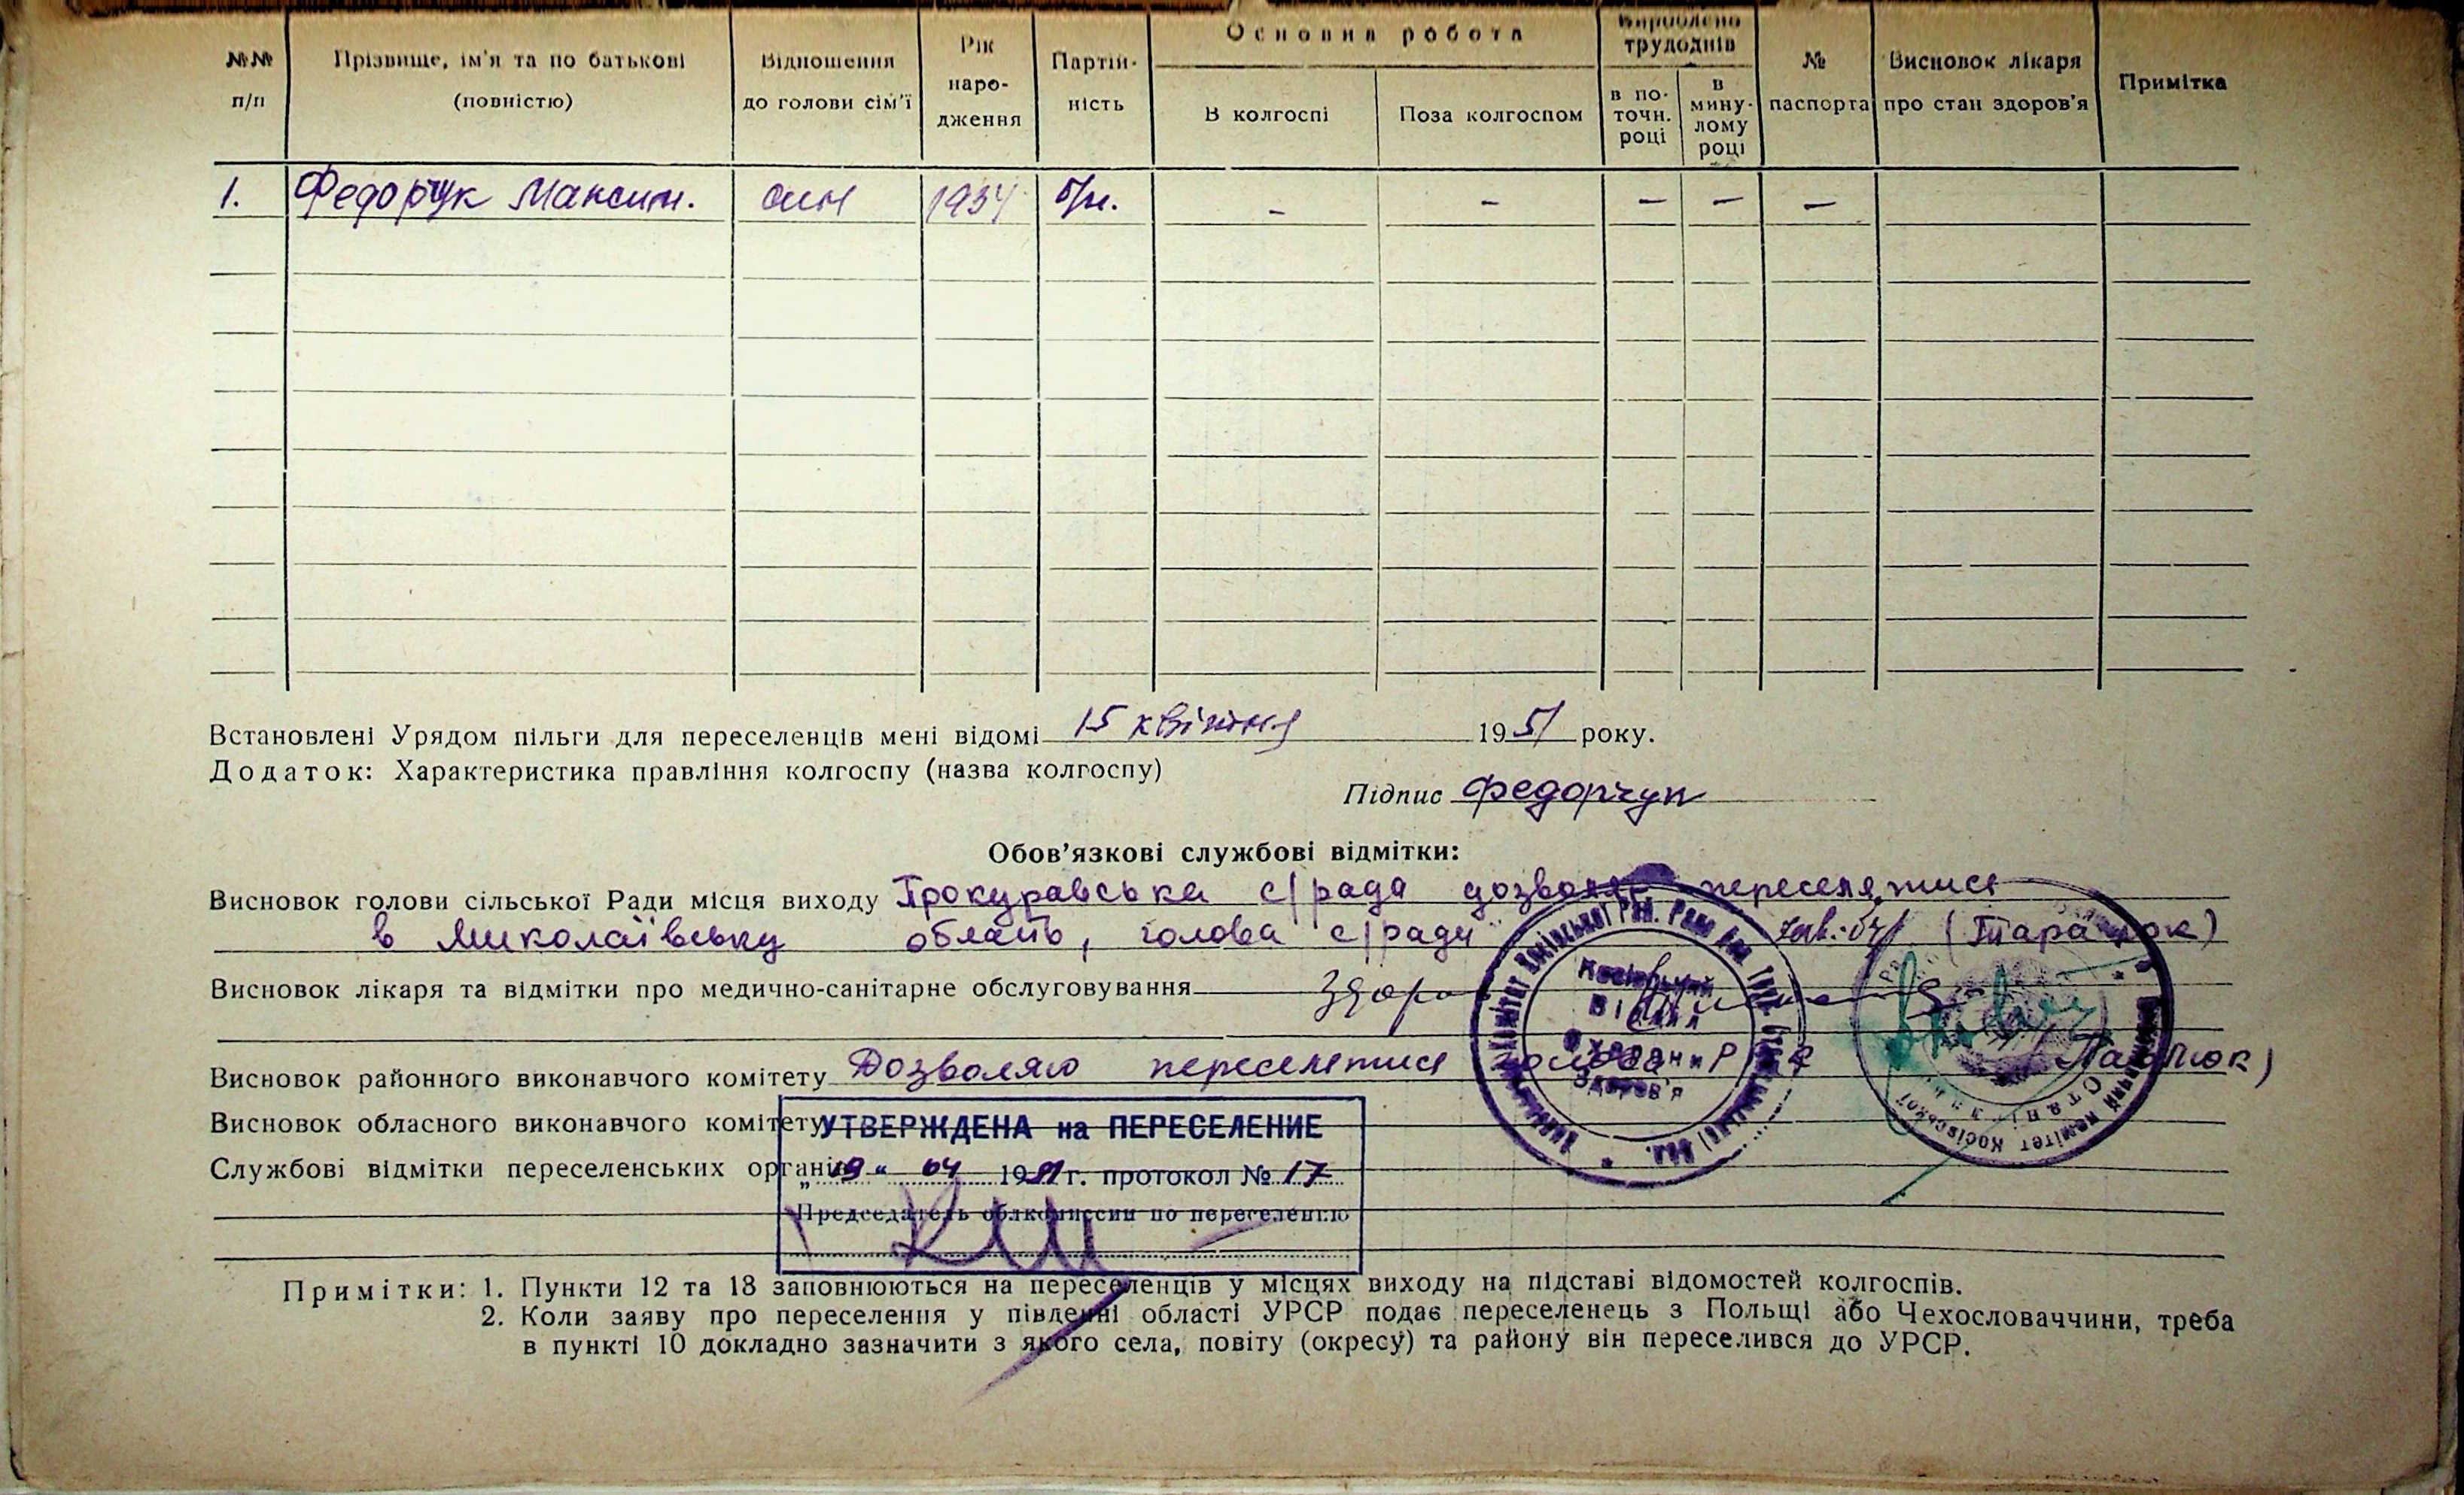 №№ п/п
Прізвище, ім'я та по батькові (повністю)
Відношення до голови сім'ї
Рік народження
Партійність
Основна робота
В колгоспі
Поза колгоспом
Вироблено трудоднів
в поточн. році
в минулому році
№ паспорта
Висновок лікаря про стан здоров'я
Примітка
1. Федорчук Максим. син 1934 б/п. – – – – –
Встановлені Урядом пільги для переселенців мені відомі 15 квітня 1951 року.
Додаток: Характеристика правління колгоспу (назва колгоспу)
Підпис Федорчук
Обов'язкові службові відмітки:
Висновок голови сільської Ради місця виходу Прокуравська с/рада дозволяє переселятись
в Миколаївську область, голова с/ради
Висновок лікаря та відмітки про медично-санітарне обслуговування
Висновок районного виконавчого комітету Дозволяю переселитись голова
Косівський
Відділ
Охорони
Здоров'я
Висновок обласного виконавчого комітету
УТВЕРЖДЕНА на ПЕРЕСЕЛЕНИЕ
Службові відмітки переселенських органів
„19" 04 1951 г. протокол № 17
Председатель облкомиссии по переселению
Примітки: 1. Пункти 12 та 13 заповнюються на переселенців у місцях виходу на підставі відомостей колгоспів.
2. Коли заяву про переселення у південні області УРСР подає переселенець з Польщі або Чехословаччини, треба
в пункті 10 докладно зазначити з якого села, повіту (окресу) та району він переселився до УРСР.